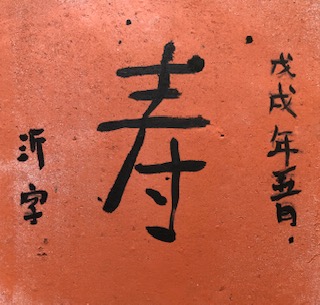 戊戌年五月
寿
沂字